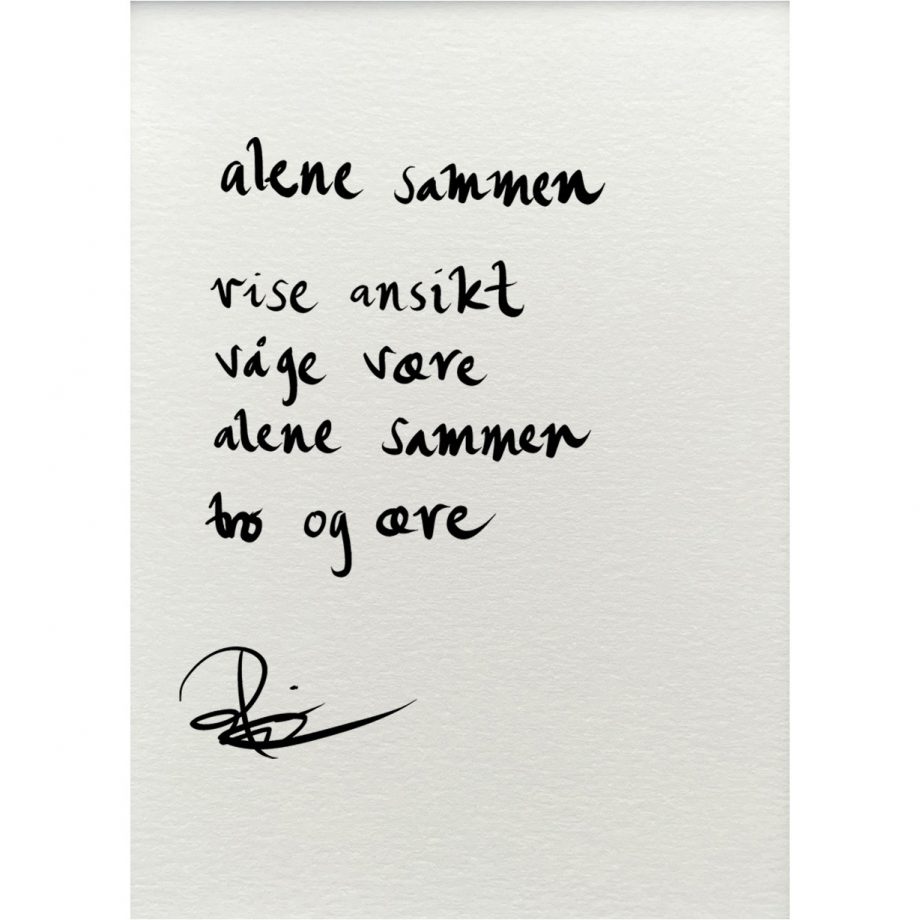 alene sammen
vise ansikt
våge være
alene sammen
tro og ære